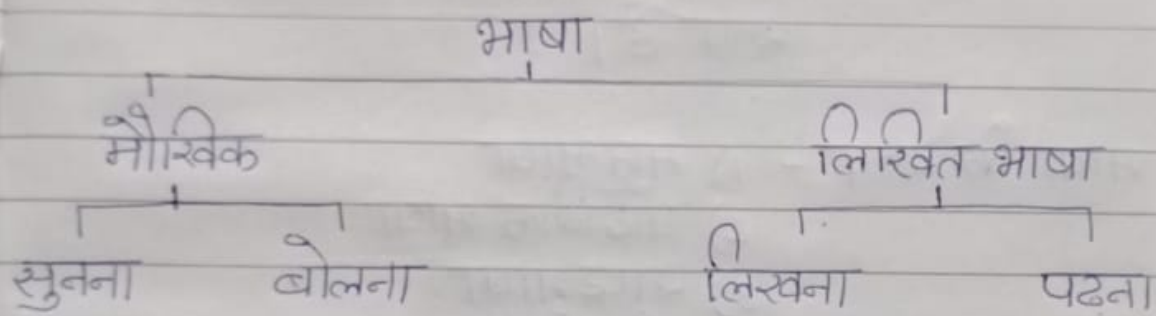 भाषा
मौखिक लिखित भाषा
सुनना बोलना लिखना पढना